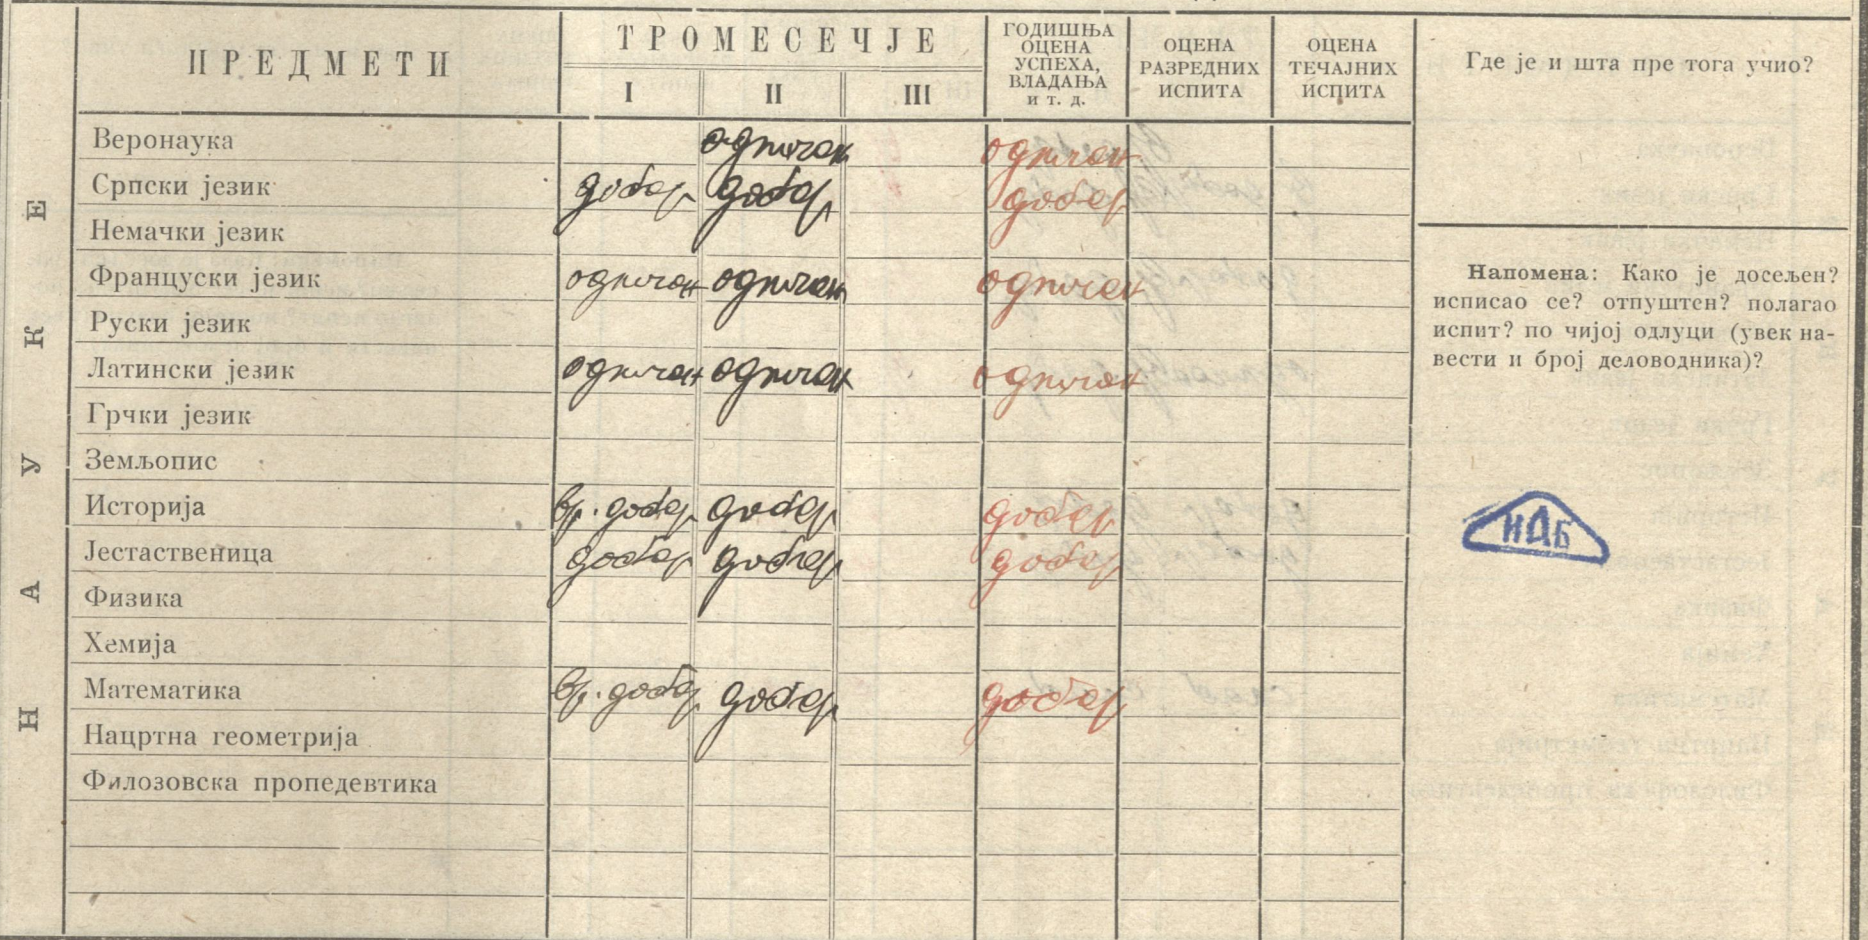 ПРЕДМЕТИ
ТРОМЕСЕЧЈЕ
I II III
ГОДИШЊА
ОЦЕНА
УСПЕХА,
ВЛАДАЊА
И Т. Д.
ОЦЕНА
РАЗРЕДНИХ
ИСПИТА
ОЦЕНА
ТЕЧАЈНИХ
ИСПИТА
Где је и шта пре тога учио?
НАУКЕ
Веронаука одличан одличан
Српски језик добар добар добар
Немачки језик
Француски језик одличан одличан одличан
Руски језик
Латински језик одличан одличан одличан
Грчки језик
Земљопис
Историја вр. добар добар добар
Јестаственица добар добар добар
Физика
Хемија
Математика вр. добар добар добар
Нацртна геометрија
Филозовска пропедевтика
Напомена: Како је досељен?
исписао се? отпуштен? полагао
испит? по чијој одлуци (увек на-
вести и број деловодника)?
НДБ